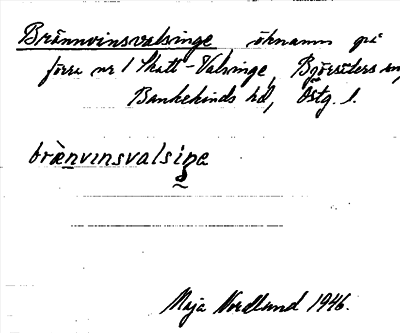 Brännvinsvalsinge öknamn på
förra nr 1 Skatt-Valsinge, Björsäters sn,
Bankekinds hd, Östg. l.
brä̀nvinsvalsiŋe
Maja Nordlund 1946.